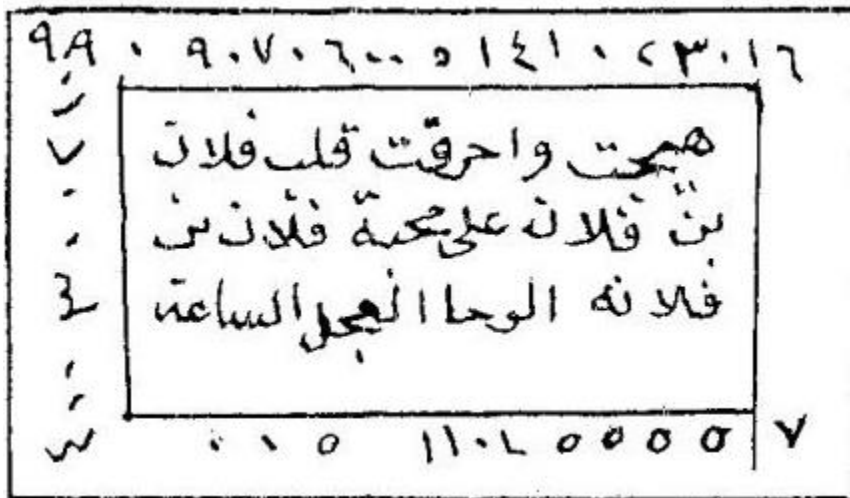 ٩٩ ٠ ٩٠٧٠٦٠٠ ٥ ١٤١ ٠ ٢ ٣٠١٦
هيجت واحرقت قلب فلان
بن فلانه على محبة فلان بن
فلانه الوحا العجل الساعة
٠١٥ ١١٠٨ ٥٥٥٥ ٧